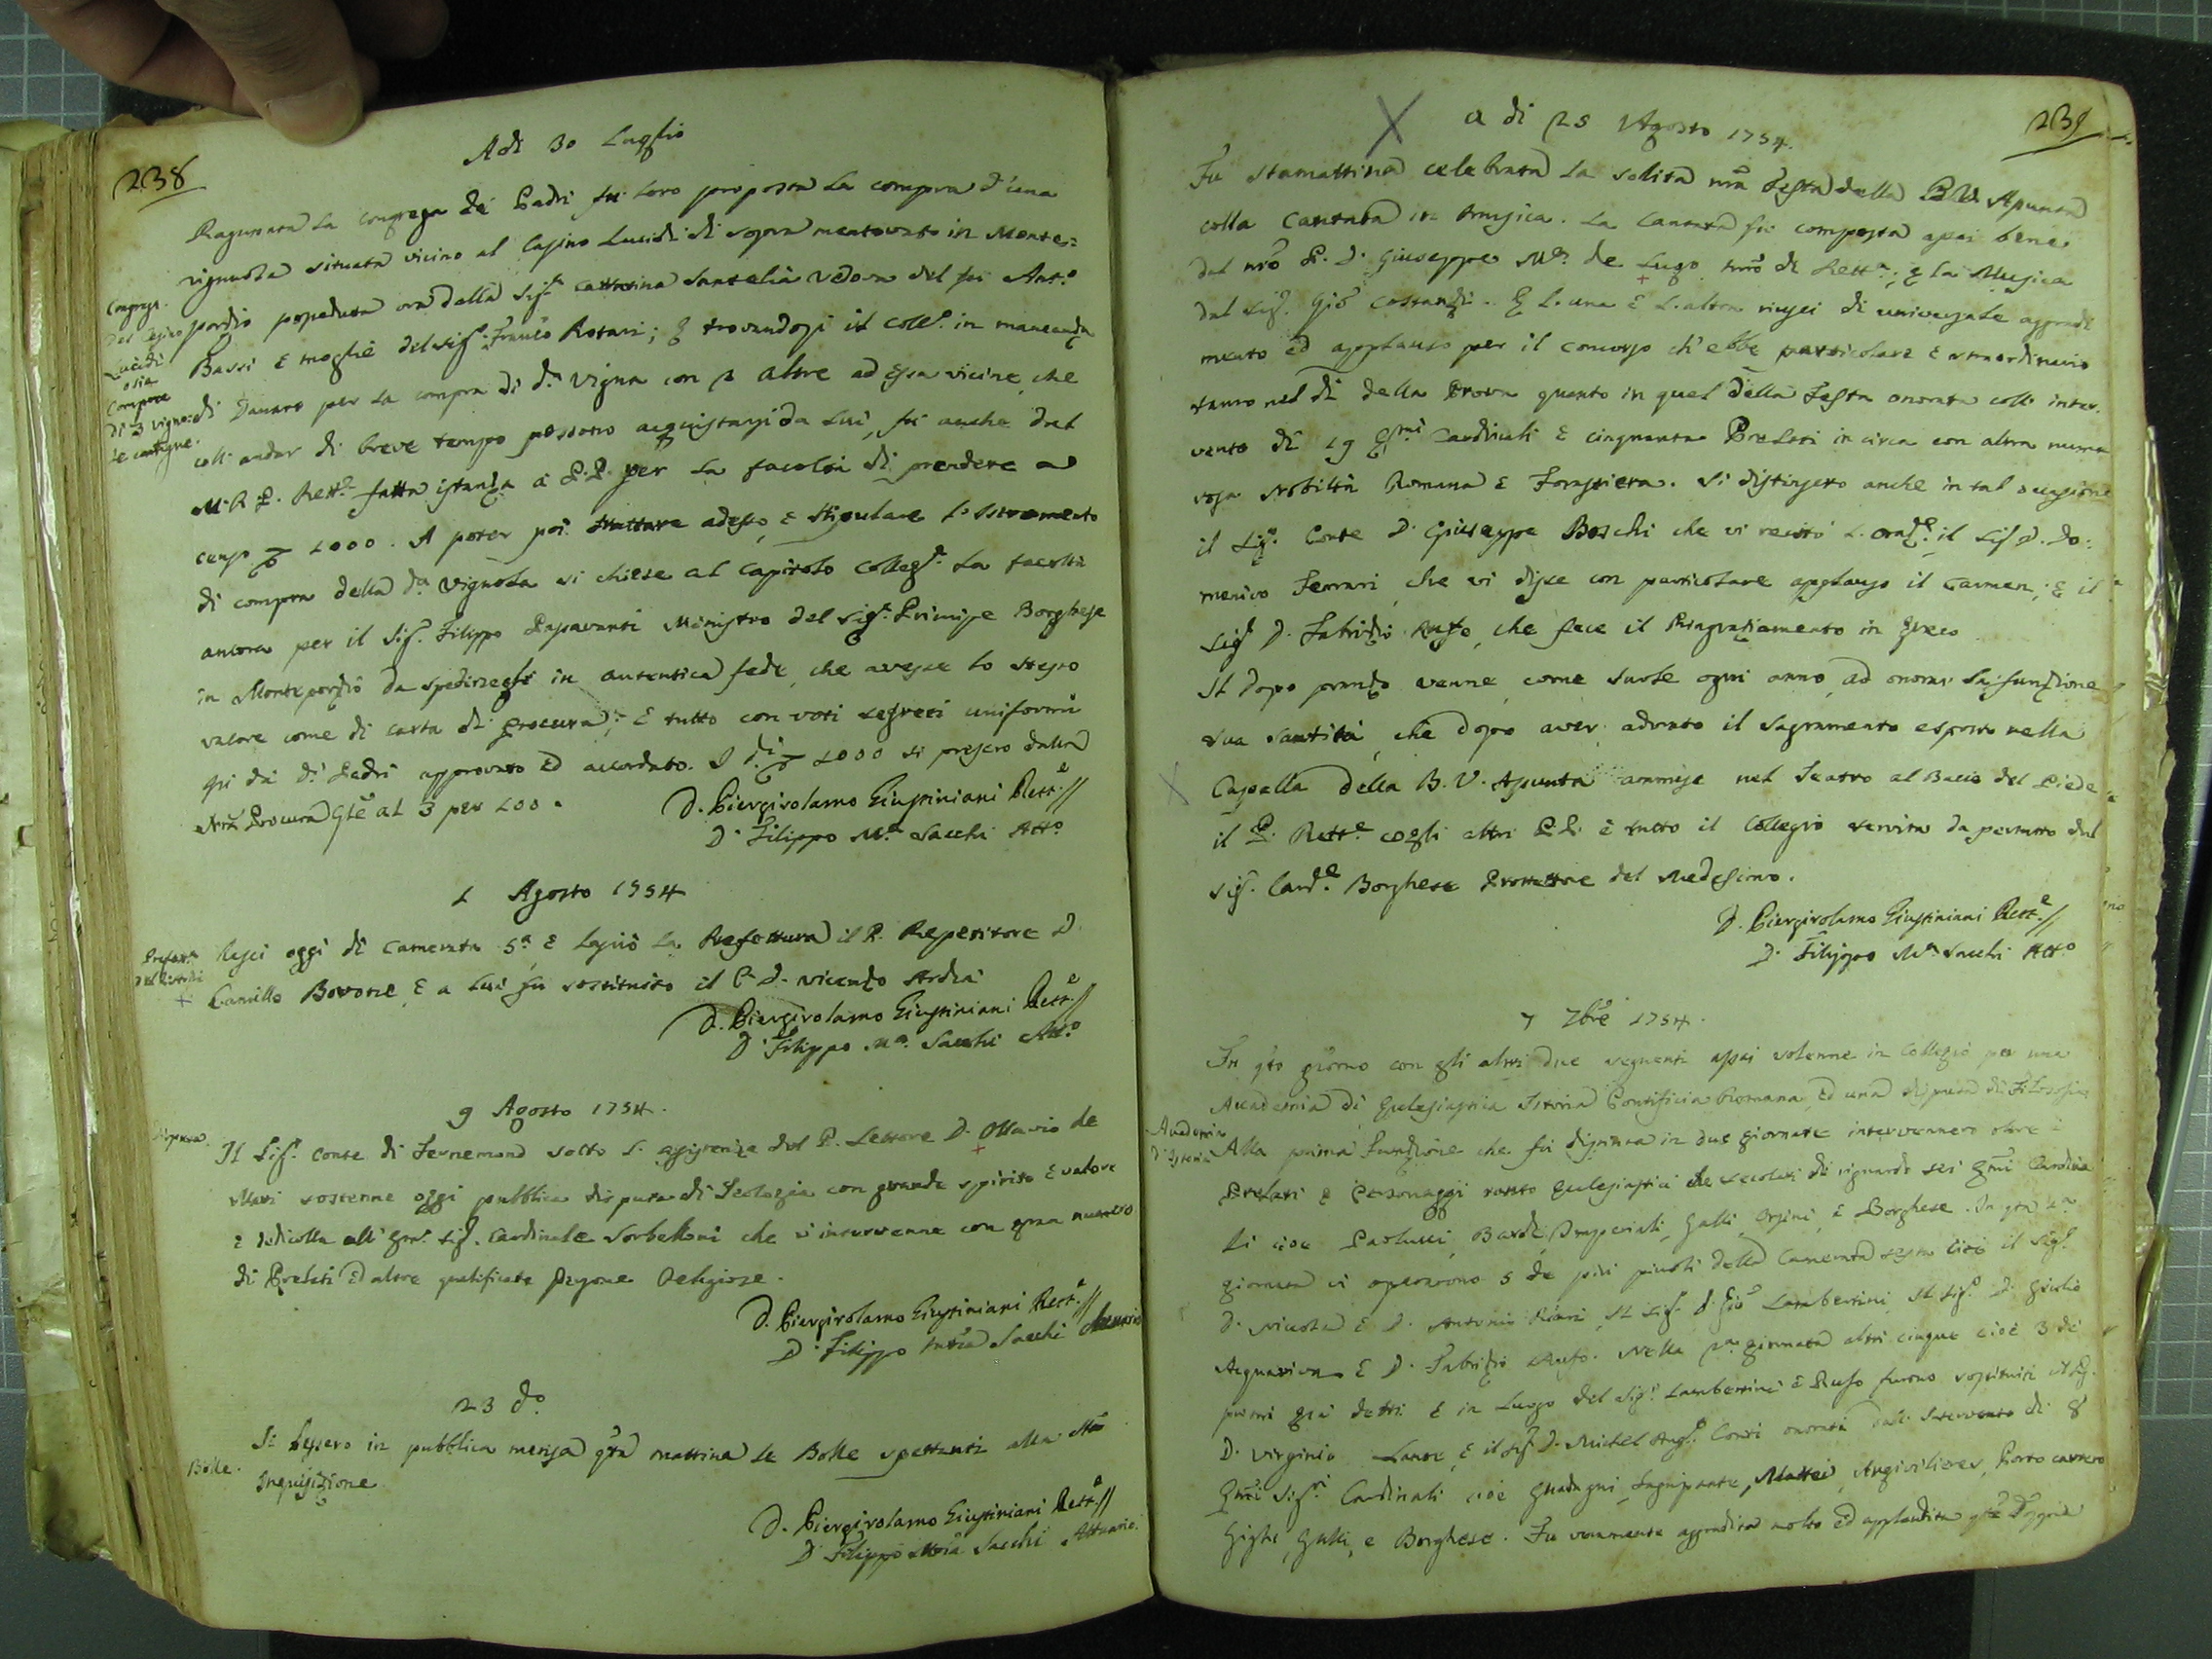 238
Adi 30 Luglio
Ragunata la congrega de Padri fu loro proposta la compra d'una
vignuola situata vicino al Casino Lucidi di sopra mentovato in Monte=
porzio posseduta ora dalla Sig.ra Catterina Santelia Vedova del fu Ant.o
Bassi e moglie del Sig.r Franc.o Rotari; e trovandosi il Coll.o in mancanza
di danaro per la compra di d.a vigna con 2 altre ad essa vicine, che
coll' andar di breve tempo possono acquistarsi da lui, fu anche dal
M. R. P. Rett.e fatta istanza a PP. per la facoltà di prendere a
censo 1000. A poter poi trattare adesso, e stipulare l'Istromento
di compra della d.a vignola si chiese al Capitolo Colleg.e la facoltà
ancora per il Sig.r Filippo Papavanti Ministro del Sig.r Principe Borghese
in Monteporzio da spedirsegli in autentica fede, che avesse lo stesso
valore come di carta di procura; e tutto con voti segreti uniformi
fu da d.i Padri approvato ed accordato. I d.i 1000 si presero dalla
Nra Procura Gle al 3 per 100.
D. Piergirolamo Giustiniani Rett.e //
D. Filippo M.a Sacchi Att.o
Congreg.
del Casino
Lucidi
osia
Compra
di 3 vigno=
le contigue.
1 Agosto 1754
Prefett.a
Uscì oggi di Camerata 5.a e lasciò la Prefettura il P. Repetitore D.
Camillo Bovone, e a lui fu sostituito il P. D. Vicenzo Ardia
D. Piergirolamo Giustiniani Rett.e //
D. Filippo M.a Sacchi Att.o
9 Agosto 1754.
Disputa.
Il Sig.r Conte di Fernemond sotto l'assistenza del P. Lettore D. Ottavio de
Mari sostenne oggi pubblica disputa di Teologia con grande spirito e valore
e dedicolla all' Em.o Sig. Cardinale Sorbelloni che v'intervenne con gran numero
di Prelati ed altre qualificate Persone Religiose.
D. Piergirolamo Giustiniani Rett.e //
D. Filippo Maria Sacchi Attuario
23 d.o
Bolle.
Si lessero in pubblica mensa q.ta mattina le Bolle spettanti alla Sta
Inquisizione
D. Piergirolamo Giustiniani Rett.e //
D. Filippo Maria Sacchi Attuario.
239
a di 25 Agosto 1754.
Fu stamattina celebrata la solita nra Festa della B. V. Assunta
colla Cantata in Musica. La Cantata fu composta assai bene
dal nro P. D. Giuseppe M.a de Lugo mro di Rett.a; e la Musica
dal Sig. Gio Costanzi. E l'una e l'altra riuscì di universale aggradi
mento ed applauso per il concorso ch'ebbe particolare e straordinario
tanto nel dì della Prova quanto in quel della Festa onorata coll' inter-
vento di 19 E.mi Cardinali e cinquanta Prelati in circa con altra nume
rosa Nobiltà Romana e Forastiera. Si distinsero anche in tal occasione
il Sig.r Conte D. Giuseppe Boschi che vi recitò l'Oraz.e, il Sig. D. Do=
menico Ferrari, che vi disse con particolare applauso il Carmen, e il
Sig.r D. Fabrizio Ruffo, che fece il Ringraziamento in Greco.
Il dopo pranzo venne, come suole ogni anno, ad onorar la funzione
Sua Santità, che dopo aver adorato il Sagramento esposto nella
Capella della B. V. Assunta ammise nel Teatro al Bacio del Piede
il P. Rett.e cogli altri PP. e tutto il Collegio servita da pertutto dal
Sig. Card.e Borghese Protettore del Medesimo.
D. Piergirolamo Giustiniani Rett.e //
D. Filippo M.a Sacchi Att.o
7 7bre 1754.
Accademia
d'Istoria
Fu q.to giorno con gli altri due seguenti assai solenne in Collegio per una
Accademia di Eclesiastica Istoria Pontificia Romana, ed una disputa di Filosofia
Alla prima Funzione che fu distinta in due giornate intervennero oltre i
Prelati e Personaggi tanto Eclesiastici che secolari di riguardo sei E.mi Cardina
li cioè Paolucci, Bardi, Imperiali, Galli, Orsini, e Borghese. In q.ta p.a
giornata vi operarono 5 de più piccoli della Camerata sesta cioè il Sig.r
D. Nicola e D. Antonio Riari, il Sig.r D. Gio Lambertini, il Sig.r D. Giulio
Acquaviva e D. Fabrizio Ruffo. Nella 2.a giornata altri cinque cioè 3 de
primi già detti e in luogo del Sig.r Lambertini e Ruffo furono sostituiti il Sig.
D. Virginio Lante, e il Sig.r D. Michel Ang.o Conti onorati dall' Intervento di 8
E.mi Sig.ri Cardinali cioè Guadagni, Sagripante, Mattei, Argivilieres, Porto carrero
Gighi, Galli, e Borghese. Fu veramente aggradita molto ed applaudita q.ta doppia